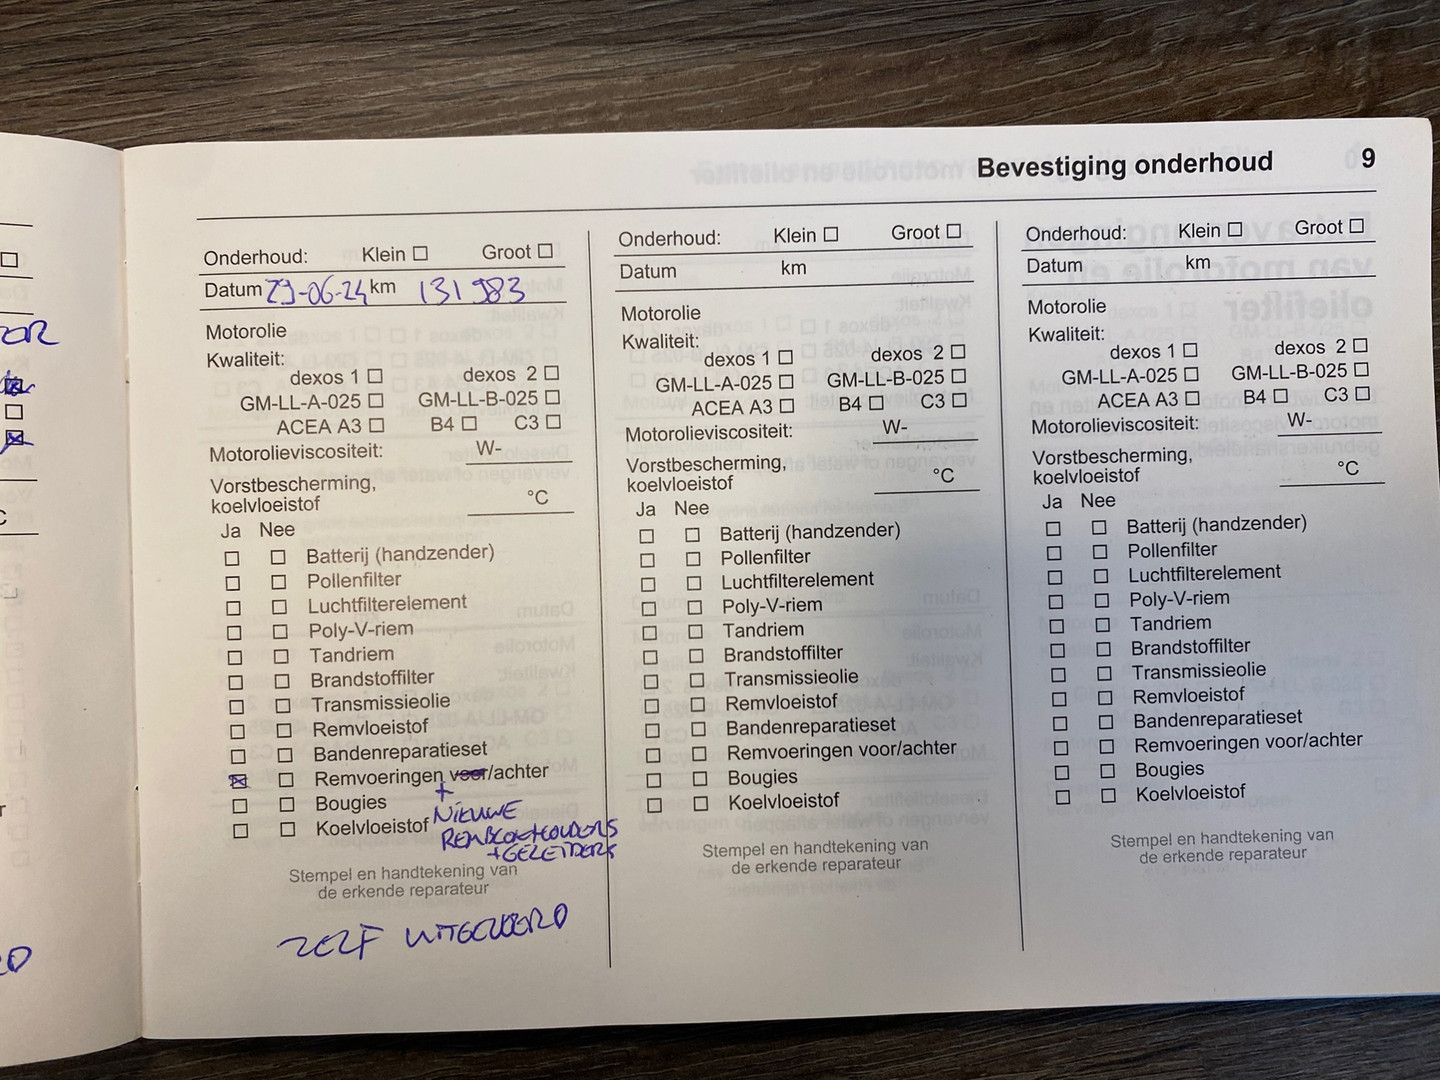 Bevestiging onderhoud 9
Onderhoud: Klein Groot
Datum 29-06-24 km 131 983
Motorolie
Kwaliteit:
dexos 1 dexos 2
GM-LL-A-025 GM-LL-B-025
ACEA A3 B4 C3
Motorolieviscositeit: W-
Vorstbescherming,
koelvloeistof °C
Ja Nee
Batterij (handzender)
Pollenfilter
Luchtfilterelement
Poly-V-riem
Tandriem
Brandstoffilter
Transmissieolie
Remvloeistof
Bandenreparatieset
Remvoeringen voor/achter
+
Bougies
NIEUWE
Koelvloeistof
REMBLOKHOUDERS
+GELEIDERS
Stempel en handtekening van
de erkende reparateur
ZELF UITGEVOERD
Onderhoud: Klein Groot
Datum km
Motorolie
Kwaliteit:
dexos 1 dexos 2
GM-LL-A-025 GM-LL-B-025
ACEA A3 B4 C3
Motorolieviscositeit: W-
Vorstbescherming,
koelvloeistof °C
Ja Nee
Batterij (handzender)
Pollenfilter
Luchtfilterelement
Poly-V-riem
Tandriem
Brandstoffilter
Transmissieolie
Remvloeistof
Bandenreparatieset
Remvoeringen voor/achter
Bougies
Koelvloeistof
Stempel en handtekening van
de erkende reparateur
Onderhoud: Klein Groot
Datum km
Motorolie
Kwaliteit:
dexos 1 dexos 2
GM-LL-A-025 GM-LL-B-025
ACEA A3 B4 C3
Motorolieviscositeit: W-
Vorstbescherming,
koelvloeistof °C
Ja Nee
Batterij (handzender)
Pollenfilter
Luchtfilterelement
Poly-V-riem
Tandriem
Brandstoffilter
Transmissieolie
Remvloeistof
Bandenreparatieset
Remvoeringen voor/achter
Bougies
Koelvloeistof
Stempel en handtekening van
de erkende reparateur